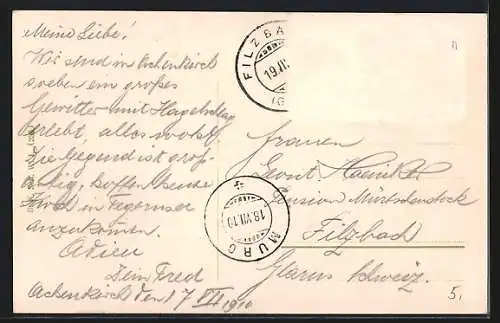 Meine Liebe!
Wir sind in Achenkirch
soeben ein großes
Gewitter mit Hagelschlag
erlebt, alles wohl.
Die Gegend ist groß-
artig, hoffen Abends
in Tegernsee
anzukommen.
Adieu
Dein Fred
Achenkirch den 17 VII 1910
FILZBA
19.VII
(G
MURG
18.VII.10
Frauen
Pension Mürtschenstock
Filzbach
Glarus Schweiz.
5.